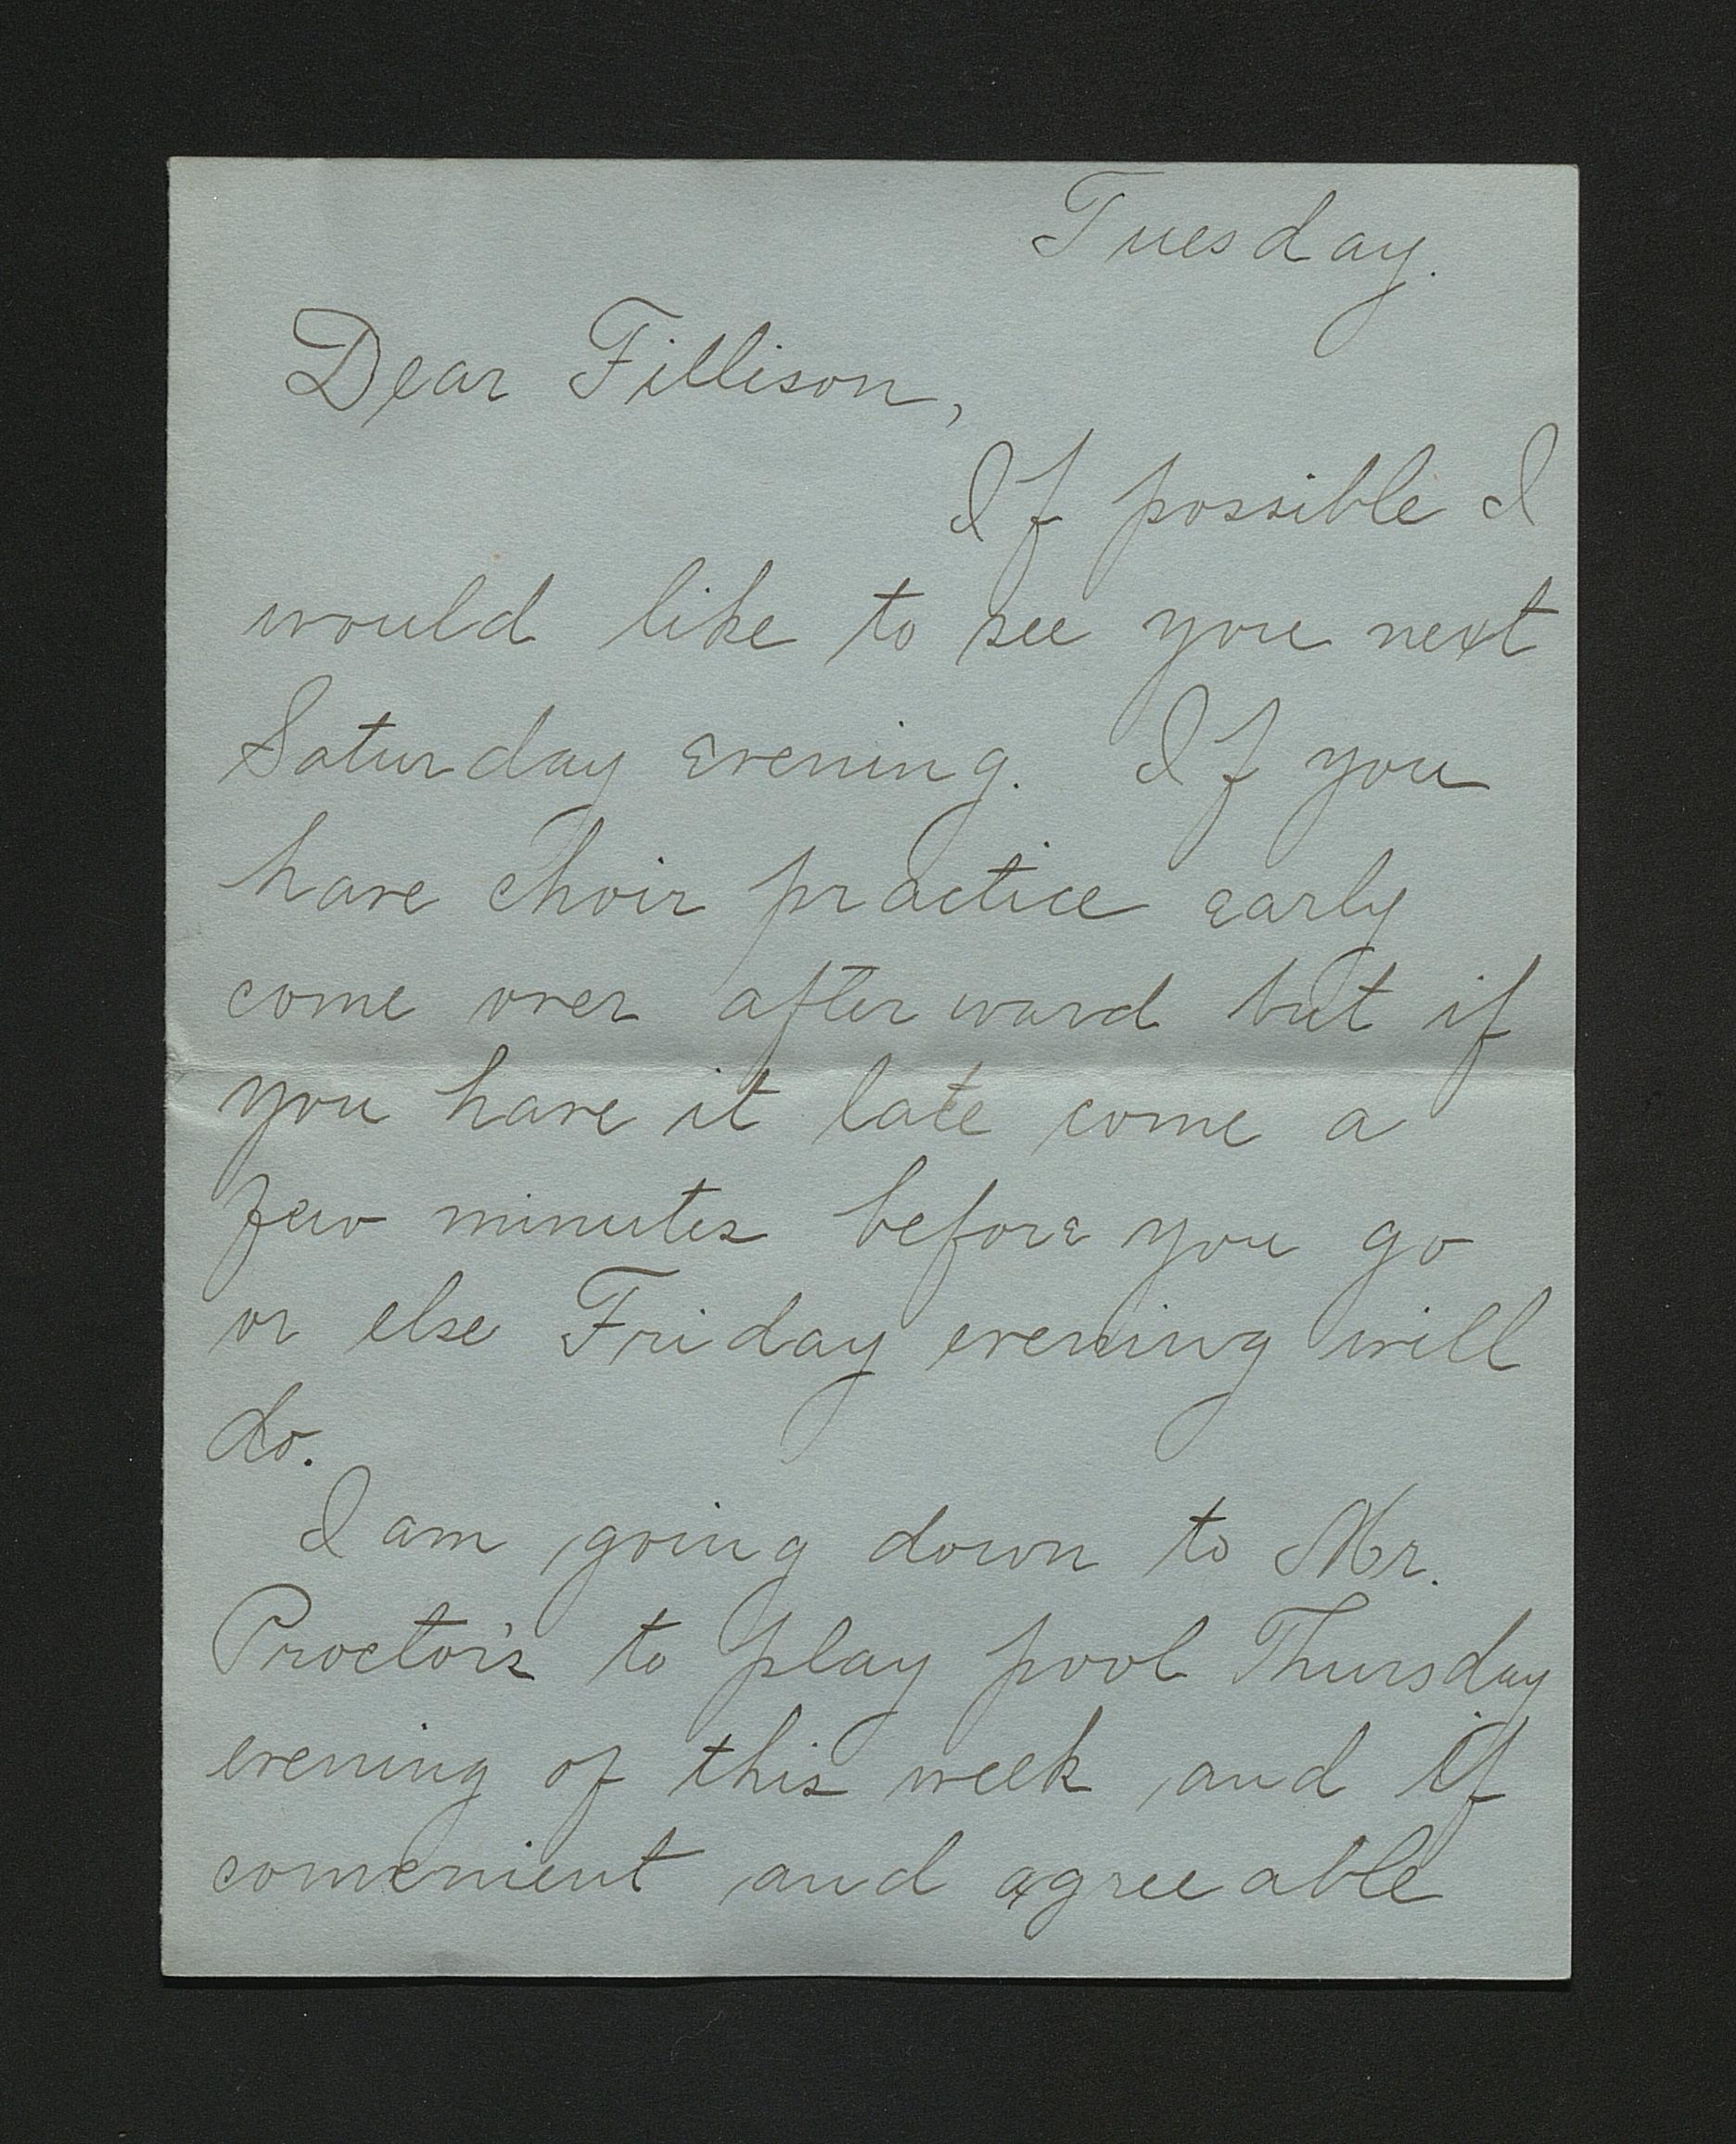 Tuesday.
Dear Fillison,
If possible I
would like to see you next
Saturday evening. If you
have choir practice early
come over afterward but if
you have it late come a
few minutes before you go
or else Friday evening will
do.
I am going down to Mr.
Proctor's to play pool Thursday
evening of this week and if
convenient and agreeable